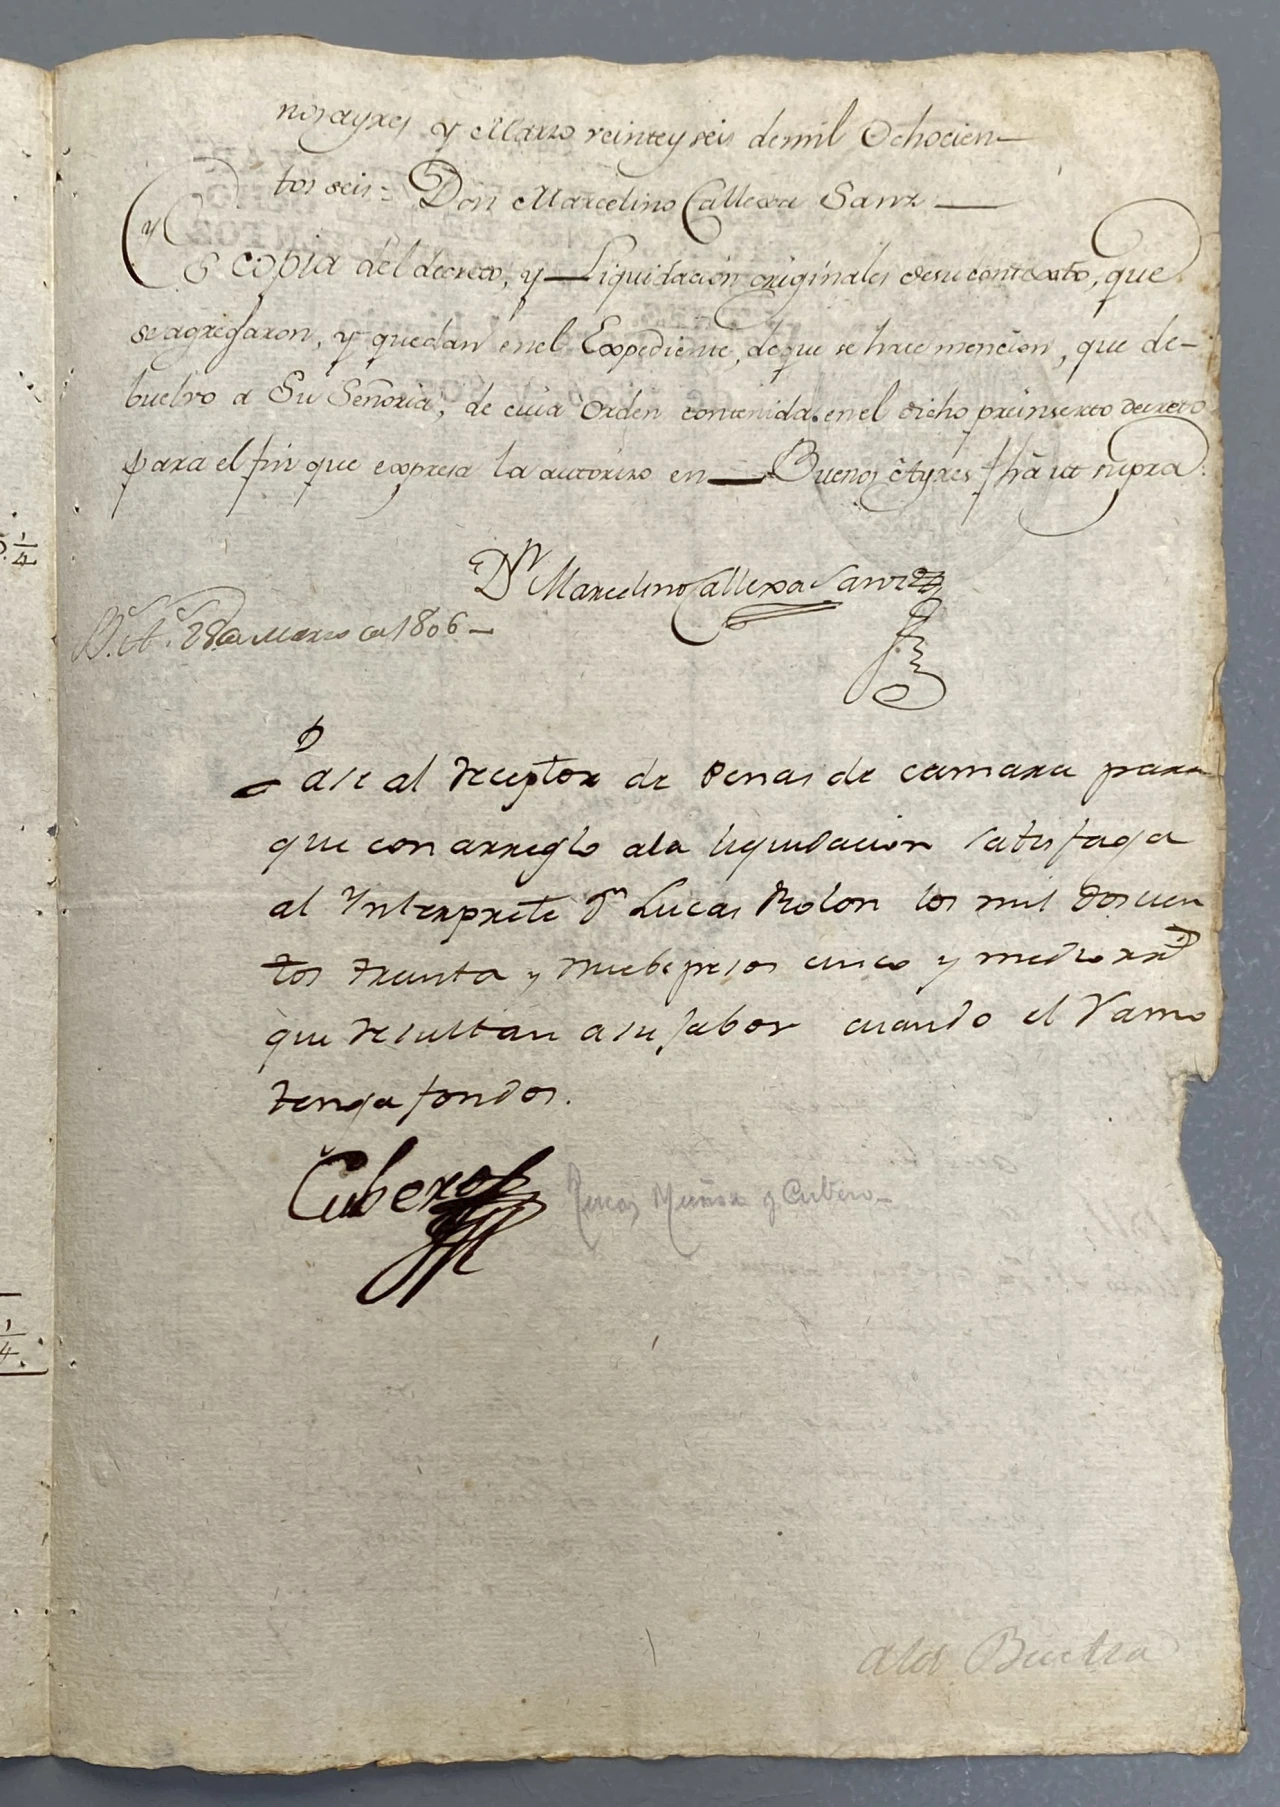 nos ayres y Marzo veinte y seis de mil Ochocien-
tos seis = Don Marcelino Callexa Sanz
Es copia del decreto, y Liquidación originales de su contexto, que
se agregaron, y quedan en el Expediente, de que se hace mencion, que de-
buelvo a Su Señoria, de cuia orden contenida en el dicho preinserto decreto
para el fin que expresa la autorizo en Buenos Ayres fhã ut supra.
Dn Marcelino Callexa Sanz
B.s A.s 28 de Marzo de 1806-
Pase al receptor de Penas de camara para
que con arreglo a la liquidacion satisfaga
al Ynterprete Dn Lucas Rolon los mil doscien
tos treinta y nuebe pesos cinco y medio rrs
que resultan a su fabor cuando el Ramo
tenga fondos.
Cubero
Lucas Muñoz y Cubero-
a la Buelta
1/4
1/4